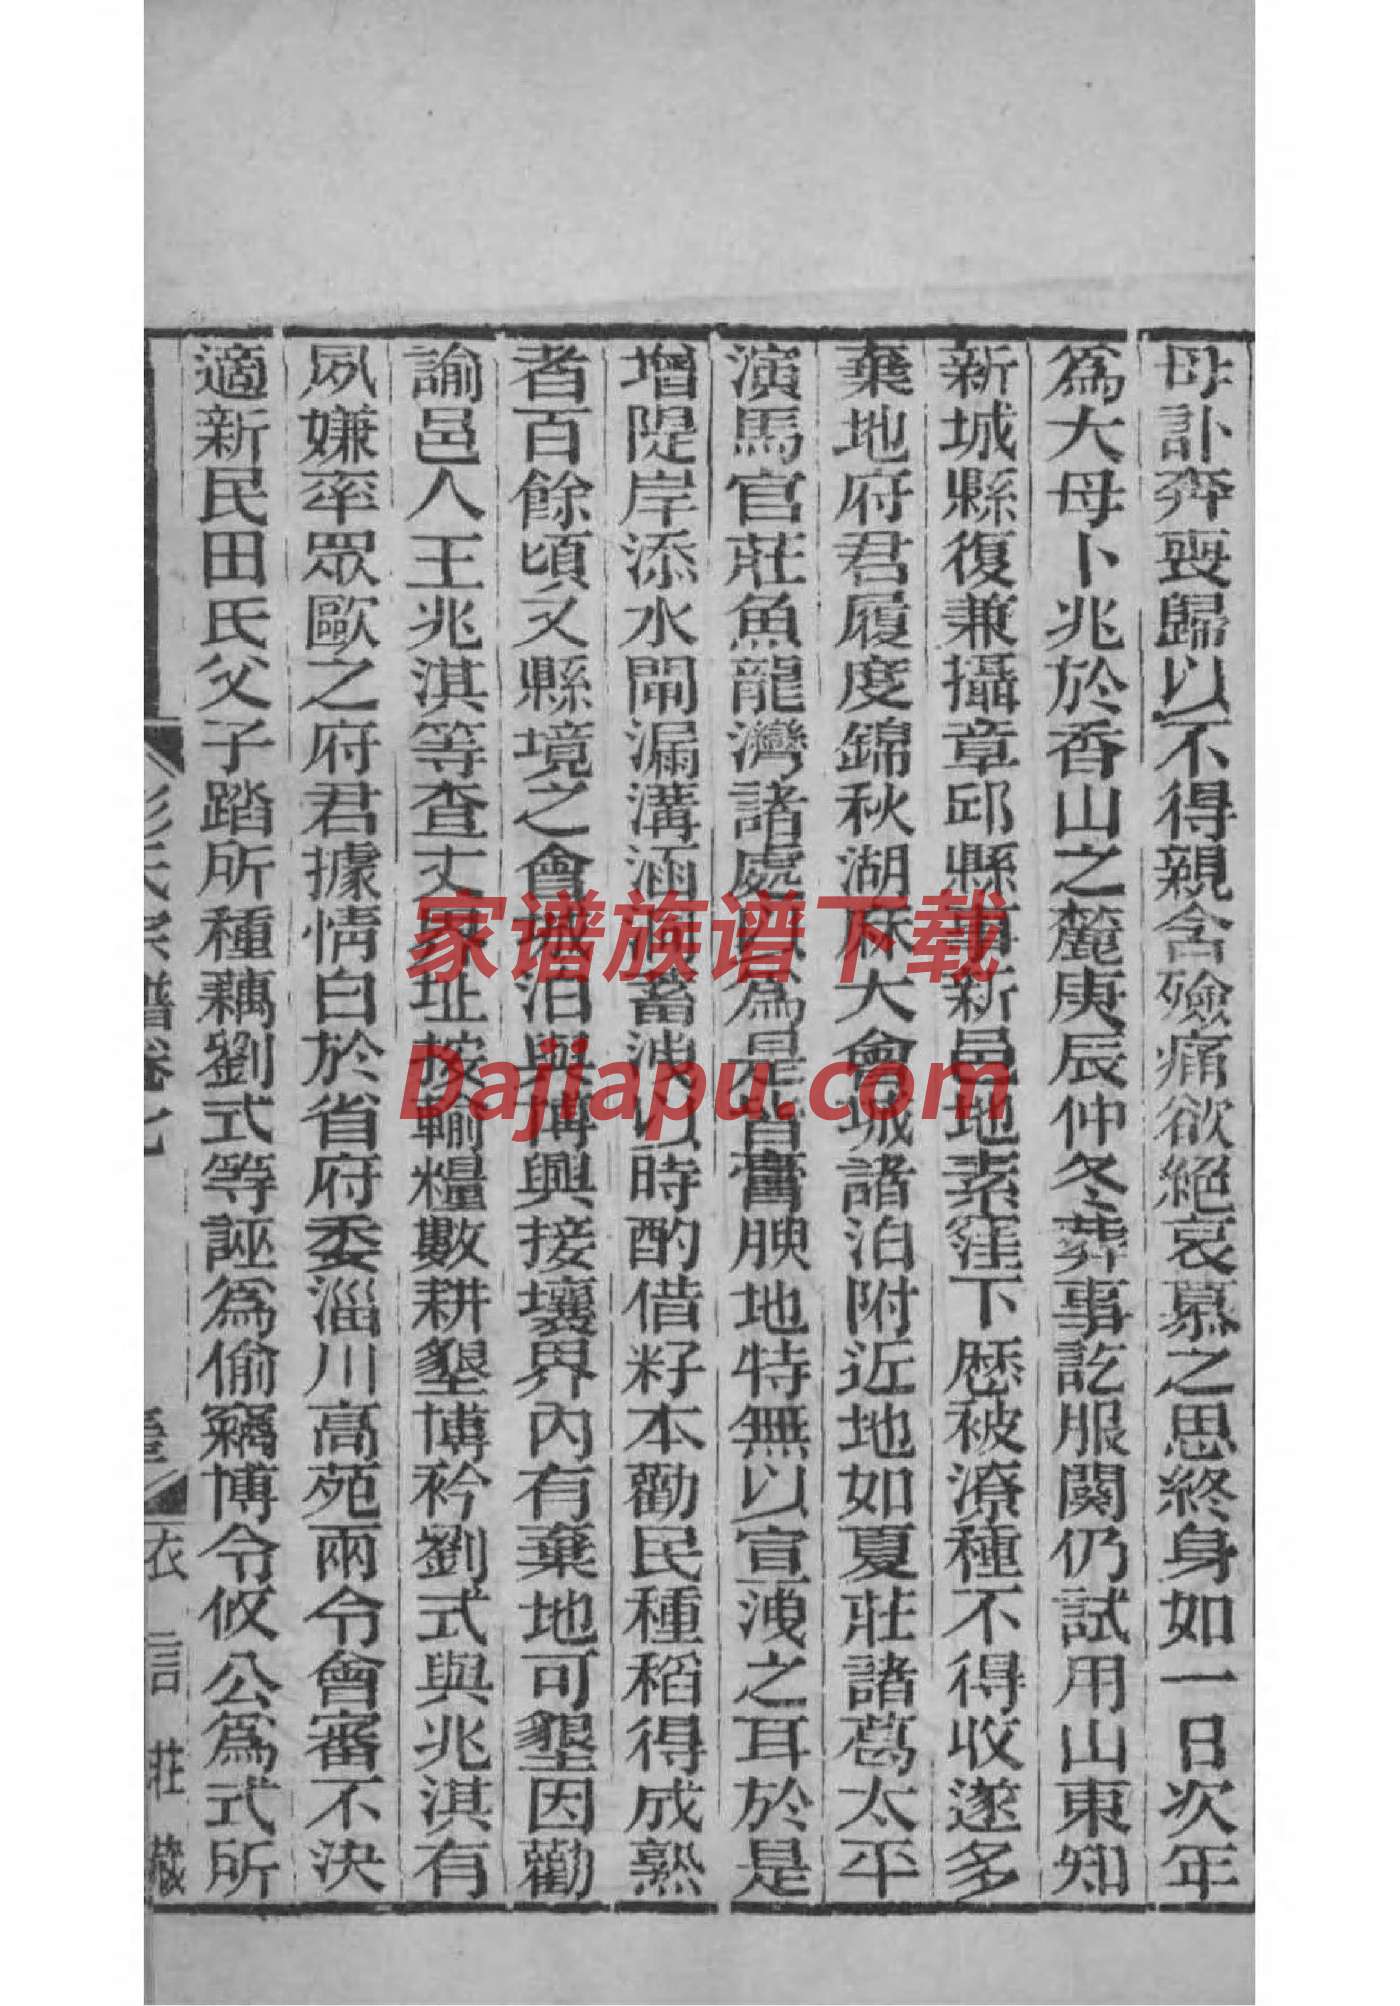 母訃奔喪歸以不得親含殮痛欲絕哀慕之思終身如一日次年
爲大母卜兆於香山之麓庚辰仲冬葬事訖服闋仍試用山東知
新城縣復兼攝章邱縣事新邑地素窪下歷被潦種不得收遂多
棄地府君履度錦秋湖麻大會城諸泊附近地如夏莊諸葛太平
演馬官莊魚龍灣諸處以爲是皆膏腴地特無以宣洩之耳於是
增隄岸添水閘漏溝涵洞蓄洩以時酌借籽本勸民種稻得成熟
者百餘頃又縣境之會城泊與博興接壤界內有棄地可墾因勸
諭邑人王兆淇等查丈界址按輸糧數耕墾博衿劉式與兆淇有
夙嫌率眾毆之府君據情白於省府委淄川高苑兩令會審不決
適新民田氏父子踏所種藕劉式等誣爲偷竊博令攸公爲式所
彭氏宗譜卷七
衣言莊藏
家谱族谱下载
Dajiapu.com